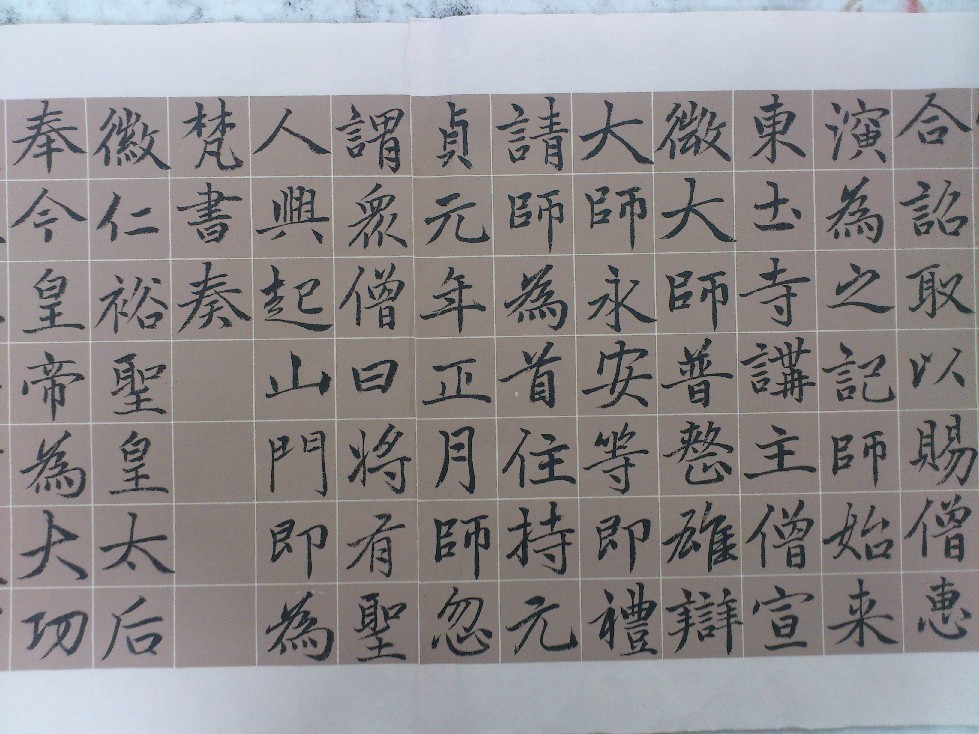 合詔取以賜僧惠
演為之記師始来
東土寺講主僧宣
微大師普慜雄辯
大師永安等即禮
請師為首住持元
貞元年正月師忽
謂衆僧曰将有聖
人興起山門即為
梵書奏
徽仁裕聖皇太后
奉今皇帝為大功